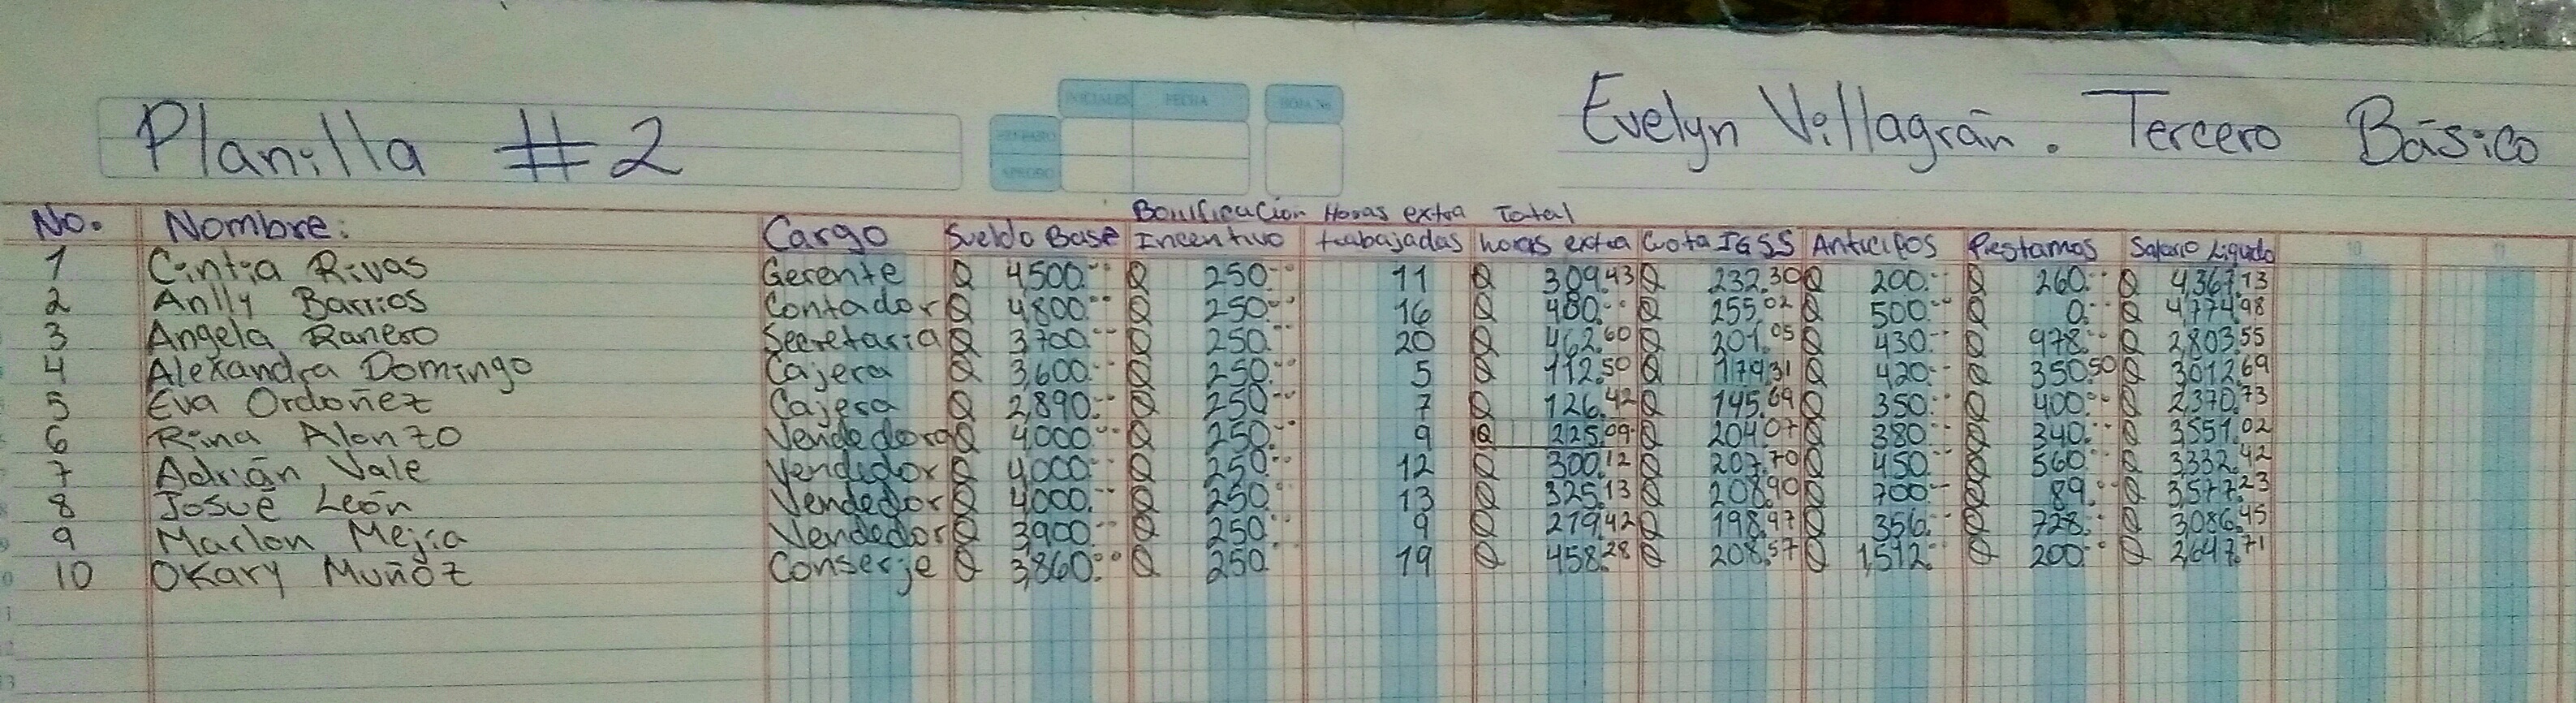 INICIALES FECHA HOJA No.
Planilla #2 Evelyn Villagrán. Tercero Básico
Bonificación Horas extra Total
No. Nombre: Cargo Sueldo Base Incentivo trabajadas horas extra Cuota IGSS Anticipos Prestamos Salario Liquido 10 11
1 Cintia Rivas Gerente Q 4,500.-- Q 250.-- 11 Q 309.43 Q 232.30 Q 200.-- Q 260.-- Q 4,367.13
2 Anlly Barrios Contador Q 4,800.-- Q 250.-- 16 Q 480.-- Q 255.02 Q 500.-- Q 0.-- Q 4,774.98
3 Angela Ranero Secretaria Q 3,700.-- Q 250.-- 20 Q 462.60 Q 201.05 Q 430.-- Q 978.-- Q 2,803.55
4 Alexandra Domingo Cajera Q 3,600.-- Q 250.-- 5 Q 112.50 Q 179.31 Q 420.-- Q 350.50 Q 3012.69
5 Eva Ordoñez Cajera Q 2,890.-- Q 250.-- 7 Q 126.42 Q 145.69 Q 350.-- Q 400.-- Q 2,370.73
6 Rina Alonzo Vendedora Q 4,000.-- Q 250.-- 9 Q 225.09 Q 204.07 Q 380.-- Q 340.-- Q 3551.02
7 Adrián Vale Vendedor Q 4,000.-- Q 250.-- 12 Q 300.12 Q 207.70 Q 450.-- Q 560.-- Q 3332.42
8 Josué León Vendedor Q 4,000.-- Q 250.-- 13 Q 325.13 Q 208.90 Q 700.-- Q 89.-- Q 3,577.23
9 Marlon Mejía Vendedor Q 3,900.-- Q 250.-- 9 Q 219.42 Q 198.97 Q 356.-- Q 728.-- Q 3086.45
10 Okary Muñoz Conserje Q 3,860.-- Q 250 19 Q 458.28 Q 208.57 Q 1,512.-- Q 200.-- Q 2,647.71